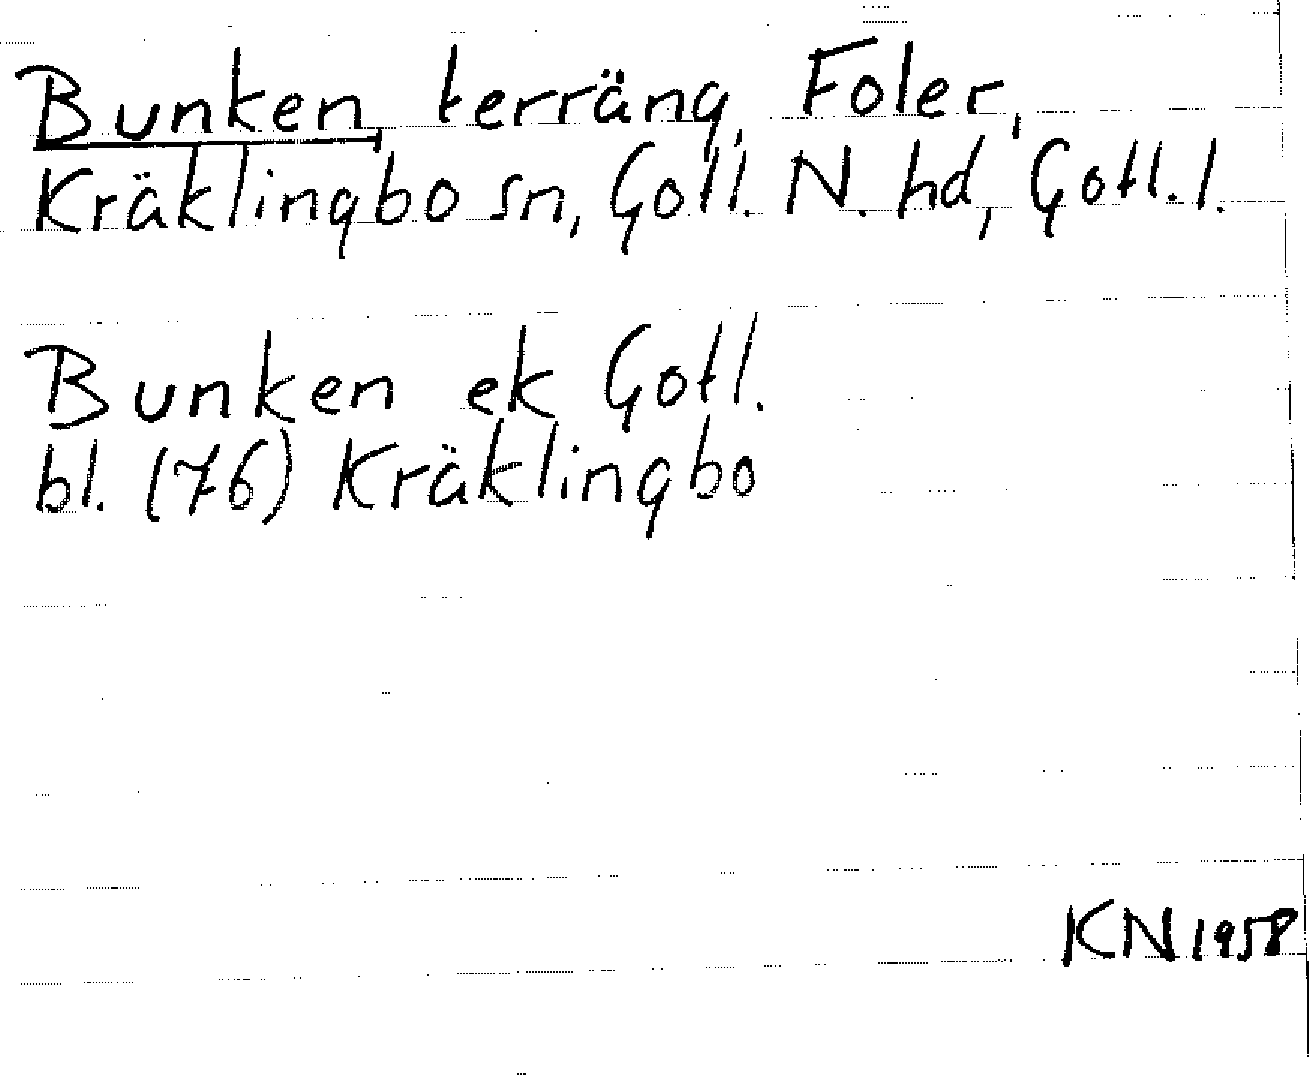 Bunken, terräng, Foler,
Kräklingbo sn, Gotl. N. hd, Gotl. l.
Bunken ek Gotl.
bl. (76) Kräklingbo
KN 1958